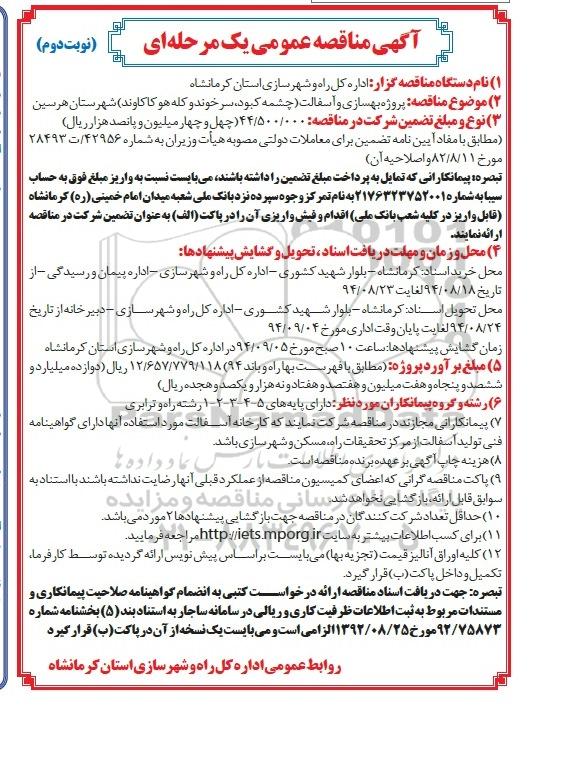 آگهی مناقصه عمومی یک مرحله‌ای
(نوبت دوم)
۱) نام دستگاه مناقصه گزار: اداره کل راه و شهرسازی استان کرمانشاه
۲) موضوع مناقصه: پروژه بهسازی و آسفالت (چشمه کبود، سرخوند و کله هو کاکاوند) شهرستان هرسین
۳) نوع و مبلغ تضمین شرکت در مناقصه: ۴۴/۵۰۰/۰۰۰ (چهل و چهار میلیون و پانصد هزار ریال)
(مطابق با مفاد آیین نامه تضمین برای معاملات دولتی مصوبه هیأت وزیران به شماره ۴۲۹۵۶/ت ۲۸۴۹۳
مورخ ۸۲/۸/۱۱ و اصلاحیه آن)
تبصره: پیمانکارانی که تمایل به پرداخت مبلغ تضمین را داشته باشند، می‌بایست نسبت به واریز مبلغ فوق به حساب
سیبا به شماره ۲۱۷۶۳۲۳۷۵۲۰۰۱ به نام تمرکز وجوه سپرده نزد بانک ملی شعبه میدان امام خمینی (ره) کرمانشاه
(قابل واریز در کلیه شعب بانک ملی) اقدام و فیش واریزی آن را در پاکت (الف) به عنوان تضمین شرکت در مناقصه
ارائه نمایند.
۴) محل و زمان و مهلت دریافت اسناد، تحویل و گشایش پیشنهادها:
محل خرید اسناد: کرمانشاه – بلوار شهید کشوری – اداره کل راه و شهرسازی – اداره پیمان و رسیدگی – از
تاریخ ۹۴/۰۸/۱۸ لغایت ۹۴/۰۸/۲۳
محل تحویل اسناد: کرمانشاه – بلوار شهید کشوری – اداره کل راه و شهرسازی – دبیرخانه از تاریخ
۹۴/۰۸/۲۴ لغایت پایان وقت اداری مورخ ۹۴/۰۹/۰۴
زمان گشایش پیشنهادها: ساعت ۱۰ صبح مورخ ۹۴/۰۹/۰۵ در اداره کل راه و شهرسازی استان کرمانشاه
۵) مبلغ برآورد پروژه: (مطابق با فهرست بها راه و باند ۹۴) ۱۲/۶۵۷/۷۷۹/۱۱۸ ریال (دوازده میلیارد و
ششصد و پنجاه و هفت میلیون و هفتصد و هفتاد و نه هزار و یکصد و هجده ریال)
۶) رشته و گروه پیمانکاران مورد نظر: دارای پایه‌های ۵-۴-۳-۲-۱ رشته راه و ترابری
۷) پیمانکارانی مجازند در مناقصه شرکت نمایند که کارخانه آسفالت مورد استفاده آنها دارای گواهینامه
فنی تولید آسفالت از مرکز تحقیقات راه، مسکن و شهرسازی باشد.
۸) هزینه چاپ آگهی بر عهده برنده مناقصه است.
۹) پاکت مناقصه گرانی که اعضای کمیسیون مناقصه از عملکرد قبلی آنها رضایت نداشته باشند با استناد به
سوابق قابل ارائه، بازگشایی نخواهد شد.
۱۰) حداقل تعداد شرکت کنندگان در مناقصه جهت بازگشایی پیشنهادها ۲ مورد می‌باشد.
۱۱) برای کسب اطلاعات بیشتر به سایت http://iets.mporg.ir مراجعه فرمایید.
۱۲) کلیه اوراق آنالیز قیمت (تجزیه بها) می‌بایست بر اساس پیش نویس ارائه گردیده توسط کارفرما،
تکمیل و داخل پاکت (ب) قرار گیرد.
تبصره: جهت دریافت اسناد مناقصه ارائه درخواست کتبی به انضمام گواهینامه صلاحیت پیمانکاری و
مستندات مربوط به ثبت اطلاعات ظرفیت کاری و ریالی در سامانه ساجار به استناد بند (۵) بخشنامه شماره
۹۲/۷۵۸۷۳ مورخ ۱۳۹۲/۰۸/۲۵ الزامی است و می‌بایست یک نسخه از آن در پاکت (ب) قرار گیرد
روابط عمومی اداره کل راه و شهرسازی استان کرمانشاه